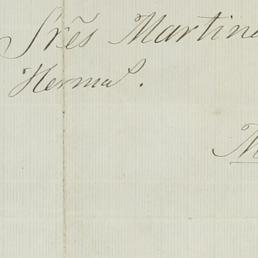 Srẽs Martine
Herma^s.
M